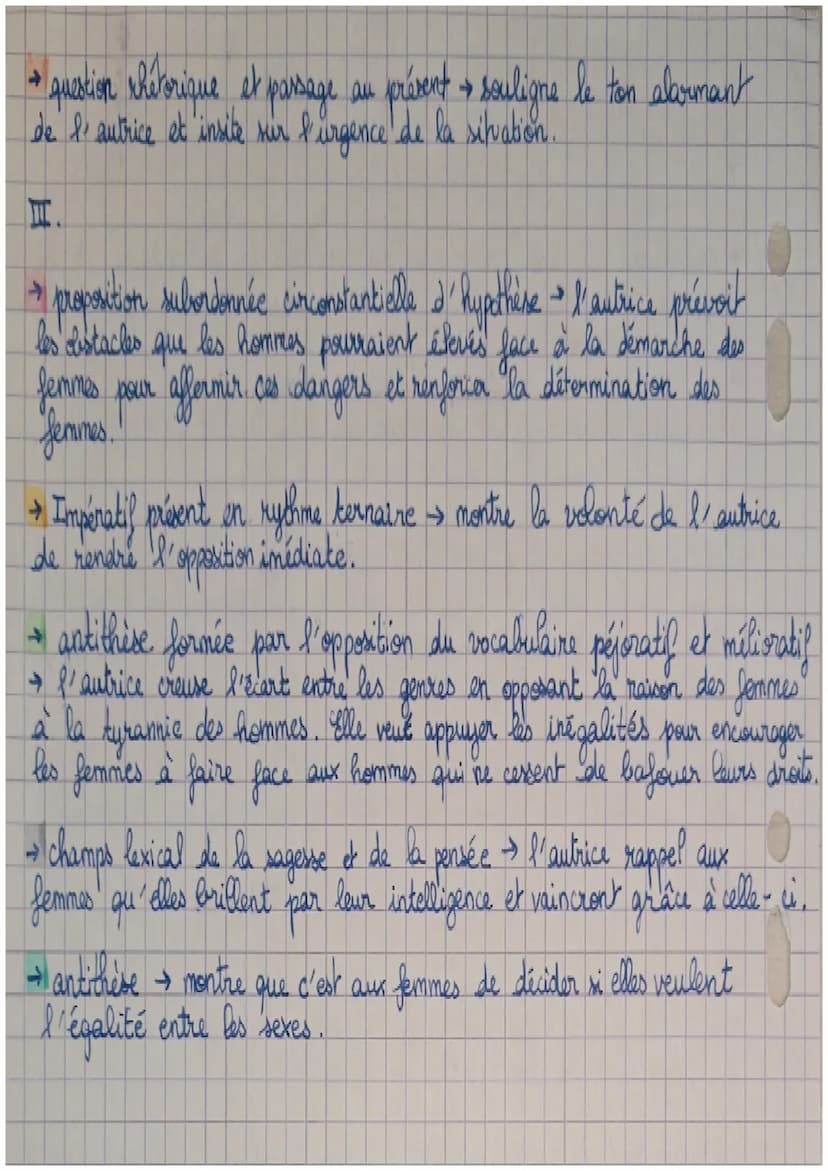 → question rhétorique et passage au présent → souligne le ton alarmant
de l'autrice et insite sur l'urgence de la situation.
III.
→ proposition subordonnée circonstantielle d'hypothèse → l'autrice prévoit
les obstacles que les hommes pourraient élevés face à la démarche des
femmes pour affermir ces dangers et renforcer la détermination des
femmes.
→ Impératif présent en rythme ternaire → montre la volonté de l'autrice
de rendre l'opposition imédiate.
→ antithèse formée par l'opposition du vocabulaire péjoratif et mélioratif
→ l'autrice creuse l'écart entre les genres en opposant la raison des femmes
à la tyrannie des hommes. Elle veut appuyer les inégalités pour encourager
les femmes à faire face aux hommes qui ne cessent de bafouer leurs droits.
→ champs lexical de la sagesse et de la pensée → l'autrice rappel aux
femmes qu'elles brillent par leur intelligence et vaincront grâce à celle-ci.
→ antithèse → montre que c'est aux femmes de décider si elles veulent
l'égalité entre les sexes.